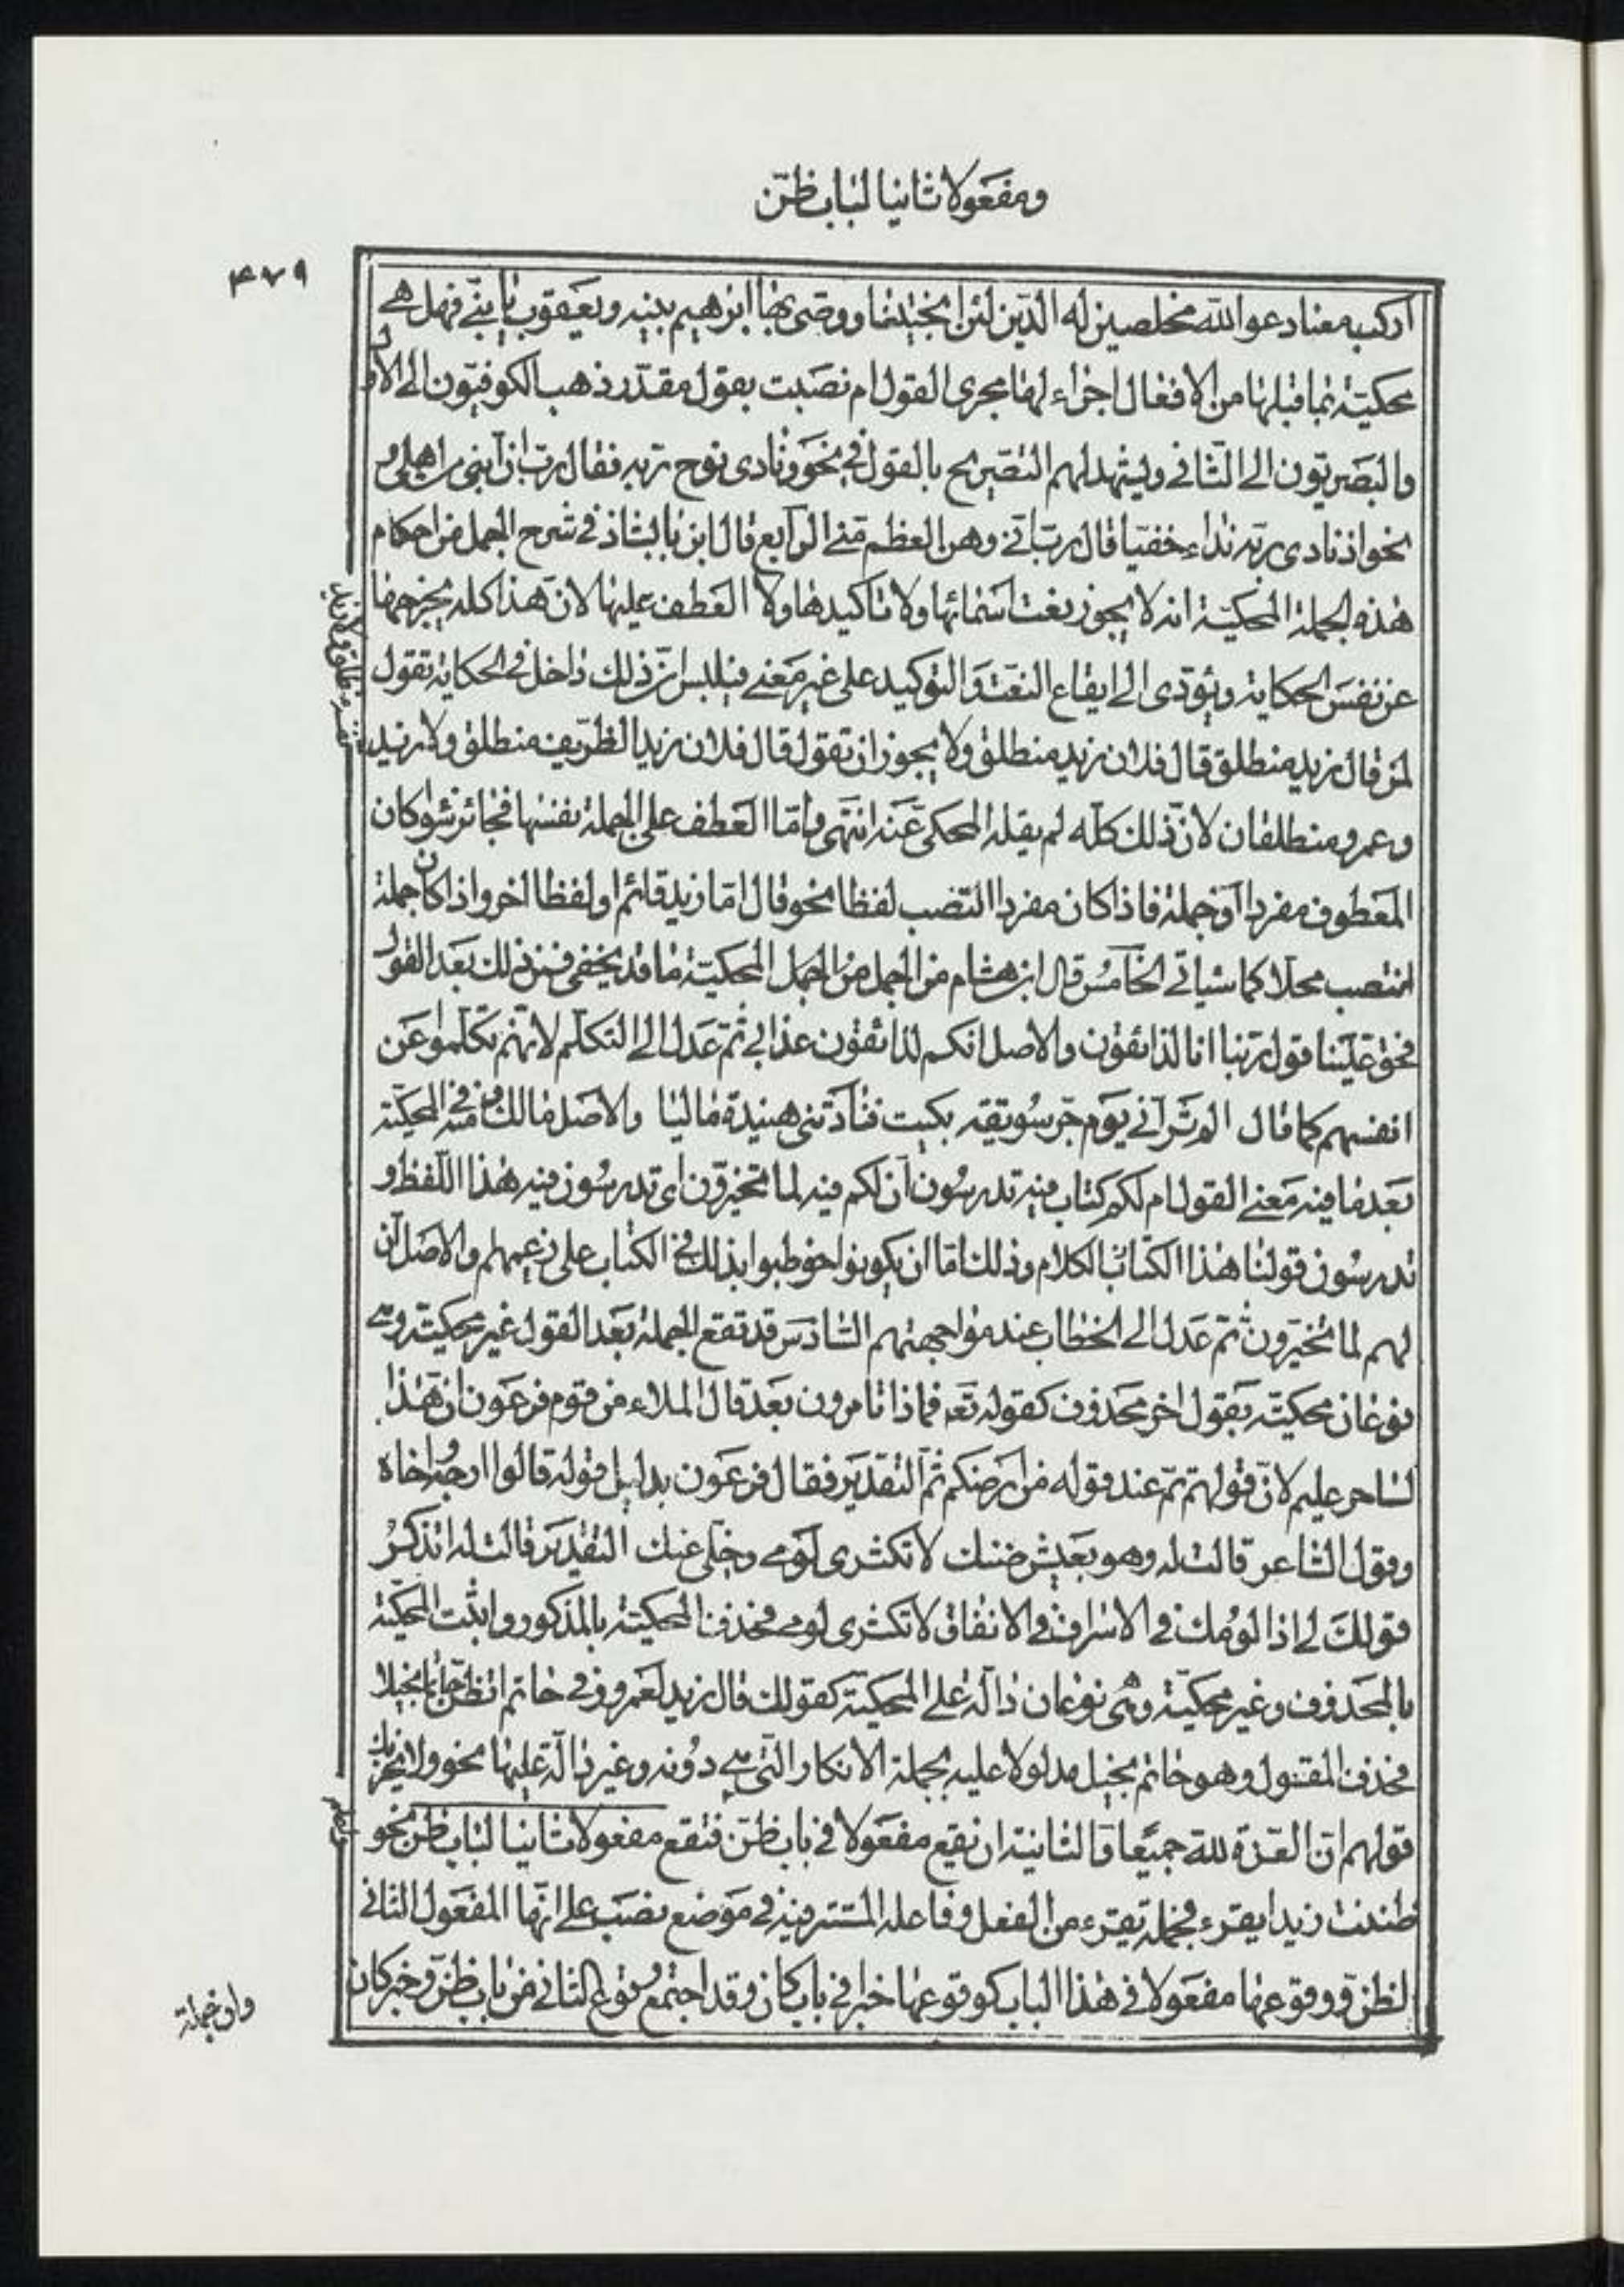 ومفعولا ثانيا لباب ظنّ
٤٧٩
اركب معنا دعوا الله مخلصين له الدّين لئن انجيتنا ووصّى بها ابرهيم بنيه ويعقوب يا بنيّ فهل هي
محكيّة بما قبلها من الافعال اجراء لها مجرى القول ام نصبت بقول مقدّر ذهب الكوفيّون الى الاوّل
والبصريّون الى الثّاني وليشهد لهم التّصريح بالقول في نحو ونادى نوح ربّه فقال ربّ انّ ابني من اهلي و
نحو اذ نادى ربّه نداء خفيّا قال ربّ انّي وهن العظم منّي الرّابع قال ابن بابشاذ في شرح الجمل من احكام
هذه الجملة المحكيّة انه لا يجوز نعت اسمائها ولا تاكيدها ولا العطف عليها لانّ هذا كله يخرجها
عن نفس الحكاية ويؤدّى الى ايقاع النعت والتوكيد على غير معنى فيلبس انّ ذلك داخل في الحكاية تقول
لمن قال زيد منطلق قال فلان زيد منطلق ولا يجوز ان تقول قال فلان زيد الظّريف منطلق ولا زيد
وعمرو منطلقان لانّ ذلك كلّه لم يقله المحكى عنه انتهى وامّا العطف على الجملة نفسها فجائز سواء كان
المعطوف مفردا او جملة فاذا كان مفردا انتصب لفظا نحو قال امّا زيد قائم او لفظا اخر واذا كان جملة
انتصب محلّا كما سياتي الخامس قال ابن هشام من الجمل من الجمل المحكيّة ما قد يخفى فمن ذلك بعد القول
فحقّ علينا قول ربّنا انا لذائقون والاصل انكم لذائقون عذابي ثمّ عدل الى التكلّم لانّهم تكلّموا عن
انفسهم كما قال الم ترانّي يوم جوّ سويقة بكيت فنادتنى هنيدة ماليا والاصل مالك ومنه في المحكيّة
بعد ما فيه معنى القول ام لكم كتاب فيه تدرسون انّ لكم فيه لما تخيّرون اى تدرسون فيه هذا اللّفظ و
تدرسون قولنا هذا الكتاب الكلام وذلك امّا ان يكونوا خوطبوا بذلك في الكتاب على زعمهم والاصل انّ
لهم لما تخيّرون ثمّ عدل الى الخطاب عند مواجهتهم السّادس قد تقع الجملة بعد القول غير محكيّة وهي
نوعان محكيّة بقول اخر محذوف كقوله تعه فماذا تامرون بعد قال الملاء من قوم فرعون انّ هذا
لساحر عليم لانّ قولهم تمّ عند قوله من ارضكم ثمّ التقدير فقال فرعون بدليل قوله قالوا ارجه واخاه
وقول الشاعر قالت له وهو بعيش ضنك لا تكثرى لومي وخلّي عنك التقدير قالت له اتذكر
قولك لي اذا لومك في الاسراف في الانفاق لا تكثرى لومي فحذف المحكيّة بالمذكور واثبت المحكيّة
بالمحذوف وغير محكيّة وهي نوعان دالّة على المحكيّة كقولك قال زيد لعمرو في حاتم اتظنّ حاتما بخيلا
فحذف المقول وهو حاتم بخيل مدلولا عليه بجملة الانكار الّتي هي دونه وغير دالّة عليها نحو ولا يحزنك
قولهم انّ العزّة لله جميعا والثانية ان تقع مفعولا في باب ظنّ فتقع مفعولا ثانيا لباب ظنّ نحو
ظننت زيدا يقرء فجملة يقرء من الفعل وفاعله المستتر فيه في موضع نصب على انّها المفعول الثاني
لظنّ ووقوعها مفعولا في هذا الباب كوقوعها خبرا في باب كان وقد اجتمع وقوع الثاني من باب ظنّ وخبر كان